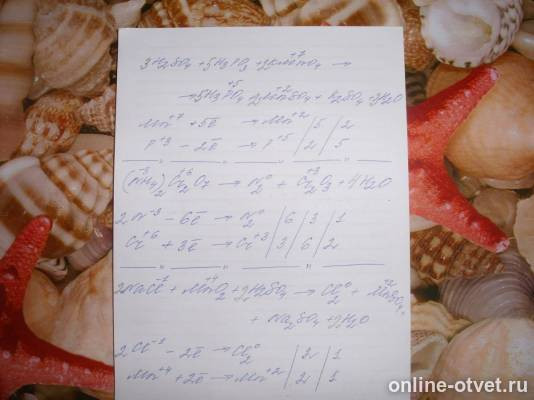 3H2SO4 + 5H3PO3 + 2KMnO4 (+7) →
→ 5H3PO4 (+5) + 2MnSO4 (+2) + K2SO4 + 3H2O
Mn+7 + 5ē → Mn+2 | 5 | 2
P+3 − 2ē → P+5 | 2 | 5
(NH4)2Cr2O7 (−3, +6) → N2 (0) + Cr2O3 (+3) + 4H2O
2N−3 − 6ē → N2 (0) | 6 | 3 | 1
Cr+6 + 3ē → Cr+3 | 3 | 6 | 2
2NaCl (−1) + MnO2 (+4) + 2H2SO4 → Cl2 (0) + MnSO4 (+2) +
+ Na2SO4 + 2H2O
2Cl−1 − 2ē → Cl2 (0) | 2 | 1
Mn+4 + 2ē → Mn+2 | 2 | 1
online-otvet.ru